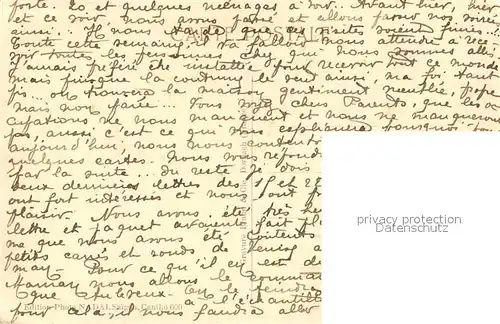 porte. Et quelques ménages à voir... Avant hier, hier
et ce soir nous avons passé et allons passer nos soirées
ainsi... Il nous tarde que ces visites soient finies!..
Toute cette semaine, il va falloir nous attendre à rece-
voir toutes les personnes chez qui nous sommes allés.
J'aurais préféré être installée pour recevoir tout ce monde
mais puisque la coutume le veut ainsi, ma foi tant
pis. on trouvera la maison gentiment meublée, propre
mais non finie... Vous voyez chers Parents, que les oc-
cupations ne nous manquent et nous ne manqueront
pas, aussi c'est ce qui vous expliquera pourquoi
aujourd'hui, nous nous contentons
quelques cartes. Nous vous répondrons
par la suite... Du reste je dois
deux dernières lettres des 15 et 27
ont fort intéressés et nous font
plaisir. Nous avons été très heu
lettre et paquet avaient fait pl
me que nous avons été contents
petits carrés et ronds de
may. Pour ce qu'il en est de
nous allons le comman
que
à l'échantill
pour cela, il nous faudra aller
privacy protection
Datenschutz
Edition Photo NADAL
600